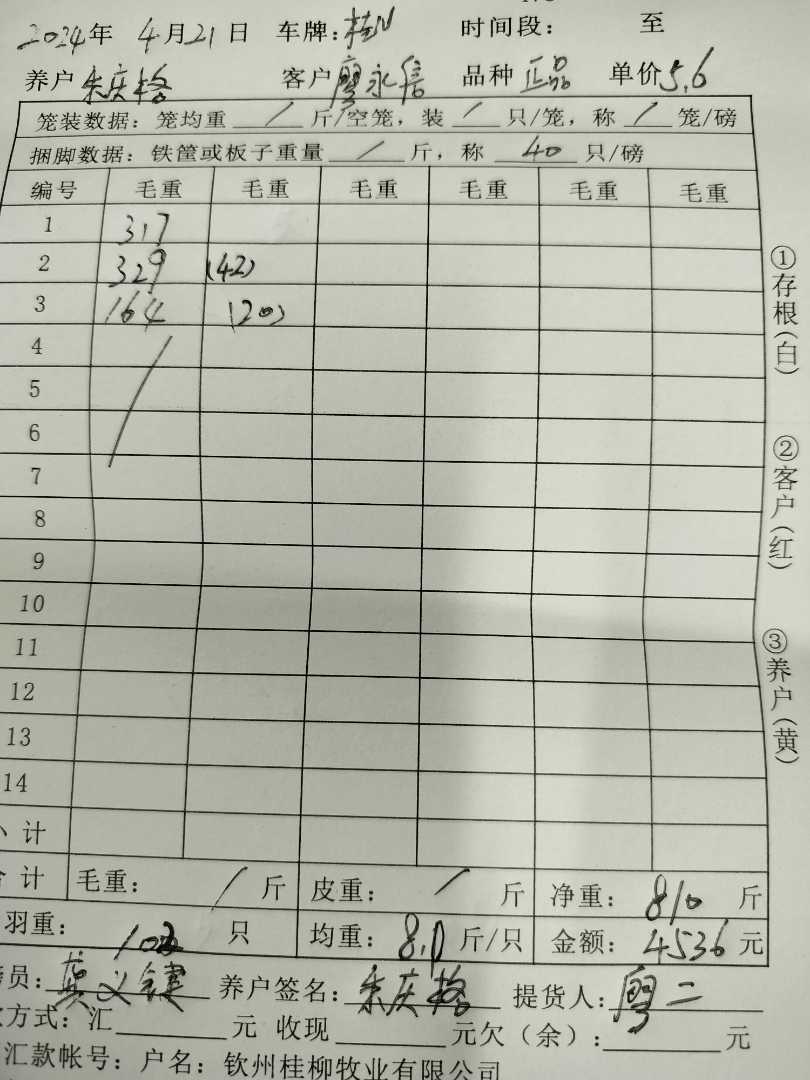 2024年 4月21日 车牌:桂N 时间段: 至
养户 朱庆格 客户 廖永信 品种 正品 单价 5.6
笼装数据: 笼均重 / 斤/空笼, 装 / 只/笼, 称 / 笼/磅
捆脚数据: 铁筐或板子重量 / 斤, 称 40 只/磅
编号 毛重 毛重 毛重 毛重 毛重 毛重
1 317
2 329 (42)
3 164 (20)
4
5
6
7
8
9
10
11
12
13
14
小 计
合 计 毛重: / 斤 皮重: / 斤 净重: 810 斤
羽重: 102 只 均重: 8.0 斤/只 金额: 4536 元
员: 龚义键 养户签名: 朱庆格 提货人: 廖二
方式: 汇 元 收现 元欠(余): 元
汇款帐号: 户名: 钦州桂柳牧业有限公司
①存根(白)
②客户(红)
③养户(黄)